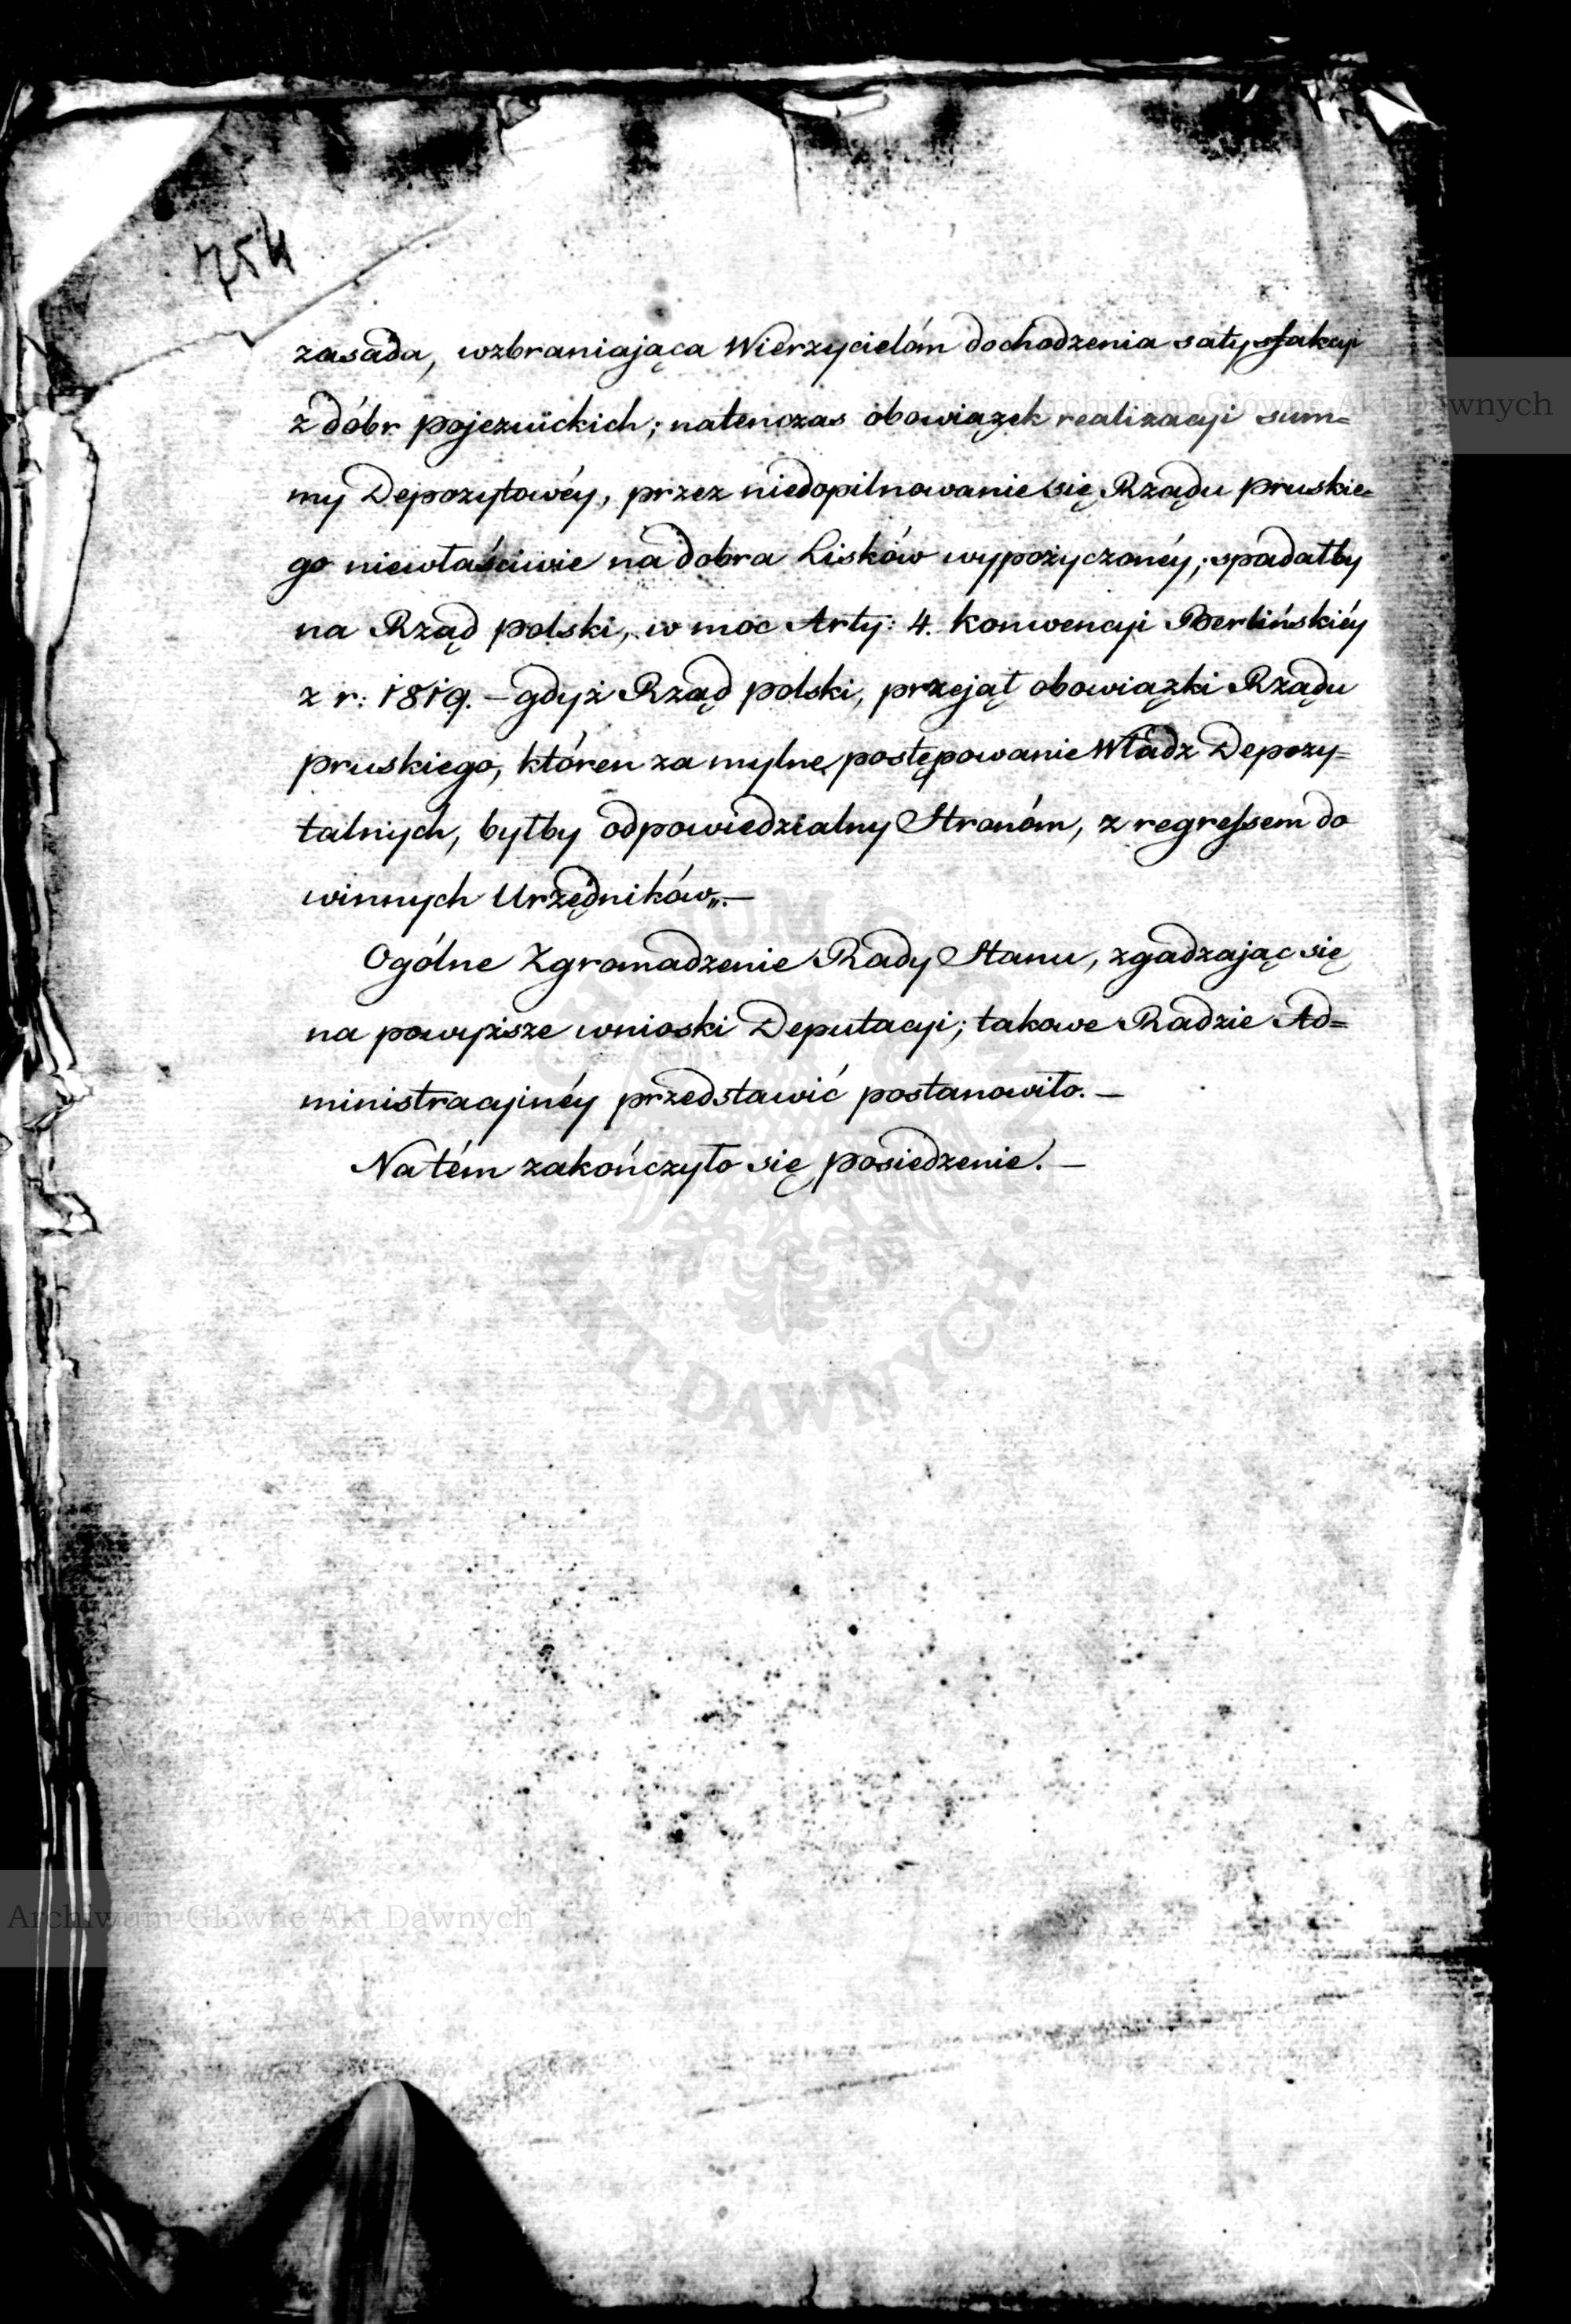 754
zasada, wzbraniająca Wierzycielóm dochodzenia satysfakcyi
z dóbr pojezuickich; natenczas obowiązek realizacyi sum=
my Depozytowéy, przez niedopilnowanie się Rządu pruskie=
go niewłaściwie na dobra Lisków wypożyczonéy, spadałby
na Rząd polski, w moc Arty: 4. konwencyi Berlińskiéy
z r: 1819. – gdyż Rząd polski, przejął obowiązki Rządu
pruskiego, któren za mylne postępowanie Władz Depozy=
talnych, byłby odpowiedzialny Stronóm, z regressem do
winnych Urzędników„. –
Ogólne Zgromadzenie Rady Stanu, zgadzając się
na powyższe wnioski Deputacyi; takowe Radzie Ad=
ministracyjnéy przedstawić postanowiło. –
Na tém zakończyło się posiedzenie. –
Archiwum Główne Akt Dawnych
Archiwum Główne Akt Dawnych
ARCHIWUM GŁÓWNE
· AKT DAWNYCH ·